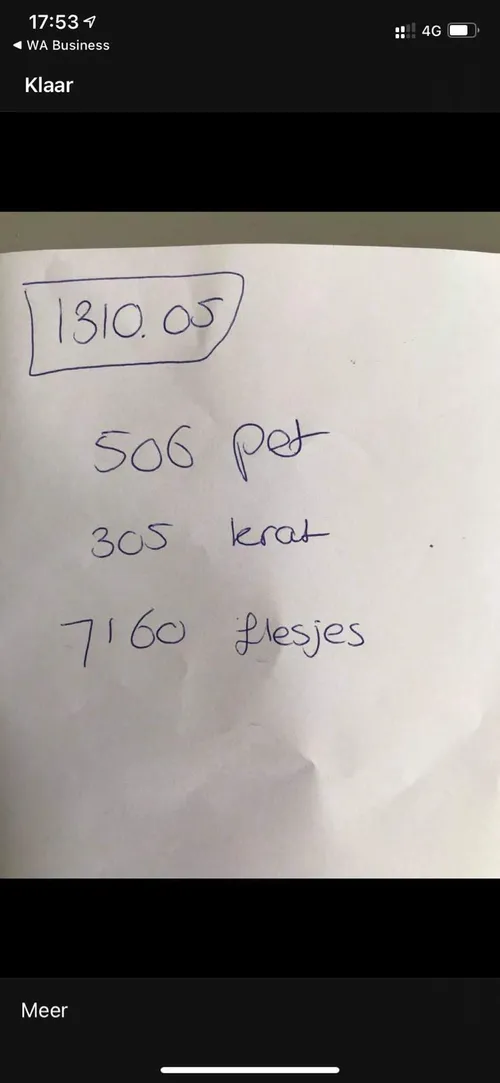 17:53
4G
◀ WA Business
Klaar
1310.05
506 pet
305 krat
7160 flesjes
Meer